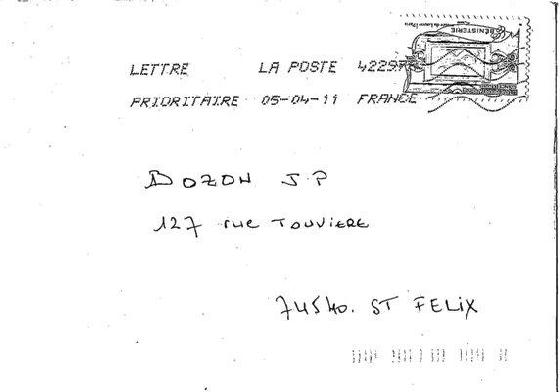 ÉBÉNISTERIE
LETTRE LA POSTE
PRIORITAIRE 05-04-11 FRANCE
BOZON J.P
127 rue TOUVIERE
74540. ST FELIX